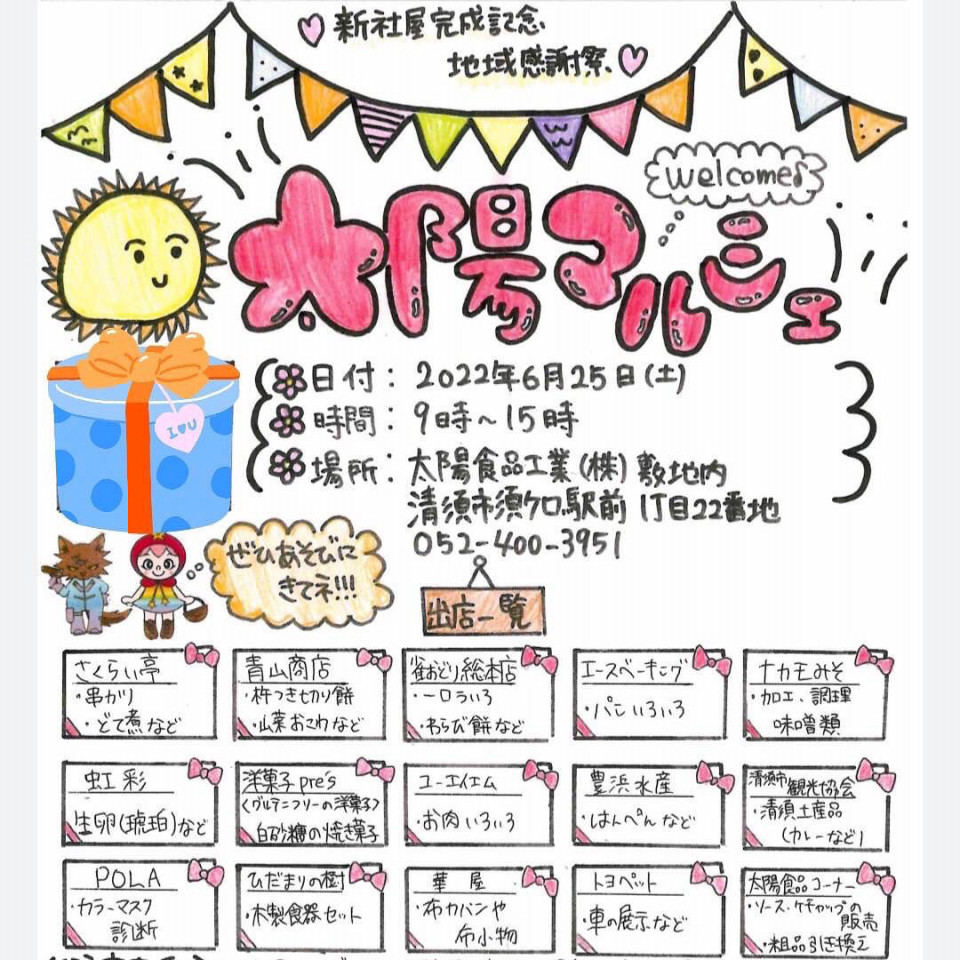 新社屋完成記念
地域感謝祭
welcome♪
太陽マルシェ
日付：2022年6月25日(土)
時間：9時～15時
場所：太陽食品工業(株)敷地内
清須市須ケ口駅前1丁目22番地
052-400-3951
I♥U
ぜひあそびに
きてネ!!!
出店一覧
さくらい亭
・串カツ
・どて煮など
青山商店
・杵つき切り餅
・山菜おこわなど
雀おどり総本店
・一口ういろ
・わらび餅など
エースベーキング
・パンいろいろ
ナカモみそ
・加工、調理
味噌類
虹彩
生卵(琥珀)など
洋菓子pre's
〈グルテンフリーの洋菓子〉
・白砂糖の焼き菓子
ユーエイエム
・お肉いろいろ
豊浜水産
・はんぺんなど
清須市観光協会
・清須土産品
(カレーなど)
POLA
・カラーマスク
診断
ひだまりの樹
・木製食器セット
華屋
・布カバンや
布小物
トヨペット
・車の展示など
太陽食品コーナー
・ソース、ケチャップの
販売
・粗品引き換え